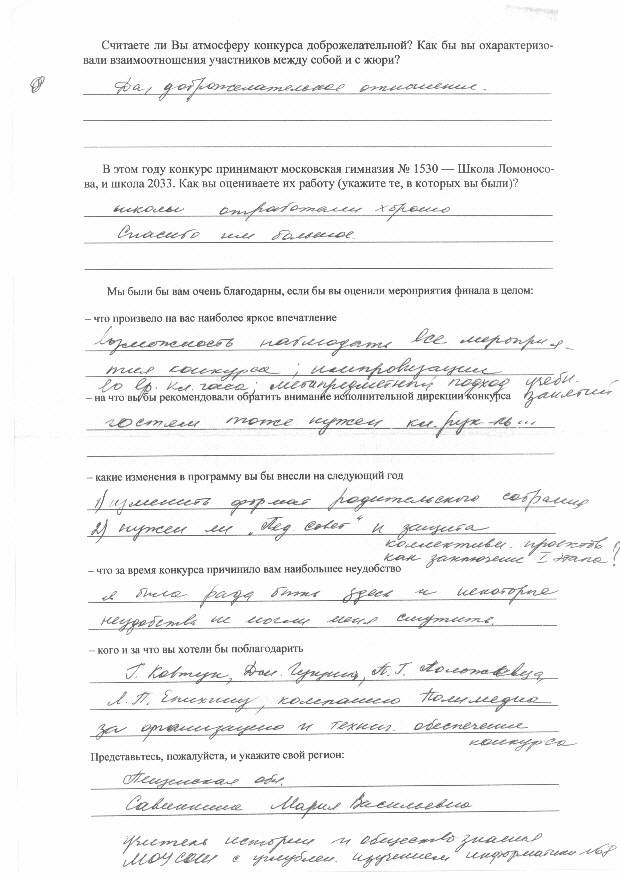 Считаете ли Вы атмосферу конкурса доброжелательной? Как бы вы охарактеризо-
вали взаимоотношения участников между собой и с жюри?
Да, доброжелательное отношение.
В этом году конкурс принимают московская гимназия № 1530 — Школа Ломоносо-
ва, и школа 2033. Как вы оцениваете их работу (укажите те, в которых вы были)?
школы отработали хорошо
Спасибо им большое
Мы были бы вам очень благодарны, если бы вы оценили мероприятия финала в целом:
– что произвело на вас наиболее яркое впечатление
возможность наблюдать все меропри-
тия конкурса; импровизации
во вр. кл. часа; метапредметный подход учебн.
занятий
– на что вы бы рекомендовали обратить внимание исполнительной дирекции конкурса
гостям тоже нужен кл. рук-ль...
– какие изменения в программу вы бы внесли на следующий год
1) изменить формат родительского собрания
2) нужен ли „Пед совет" и защита
коллективн. проектов
как заключение I этапа?
– что за время конкурса причинило вам наибольшее неудобство
я была рада быть здесь и некоторые
неудобства не могли меня смутить.
– кого и за что вы хотели бы поблагодарить
Г. Ковтун, А.Г.
Л.П. Епихину, компанию Полимедиа
за организацию и технич. обеспечение
конкурса
Представьтесь, пожалуйста, и укажите свой регион:
Пензенская обл.
Мария Васильевна
учитель истории и обществознания
МОУ СОШ с углублен. изучением информатики №68